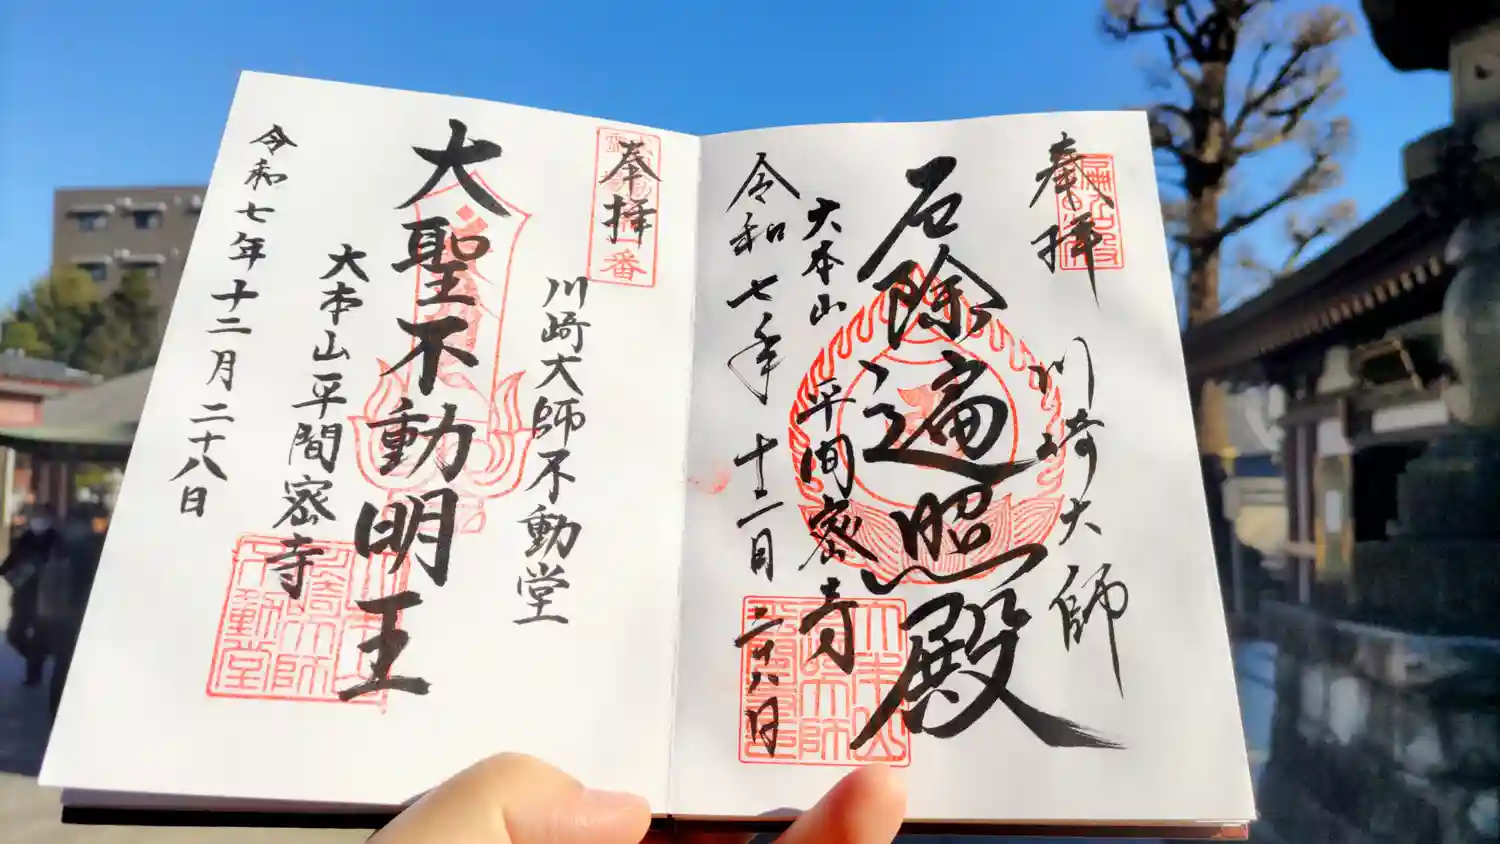 奉拝
川崎大師
厄除遍照殿
大本山 平間密寺
令和七年十二月二十八日
奉拝
一番
川崎大師不動堂
大聖不動明王
大本山平間密寺
令和七年十二月二十八日